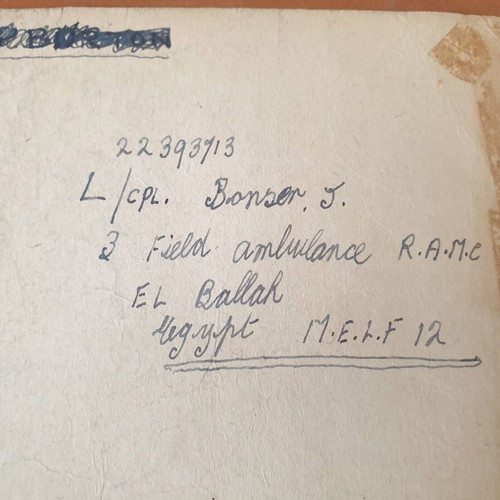 22393713
L/CPL. Bonser, J.
3 Field ambulance R.A.M.C
EL Ballah
Egypt M.E.L.F 12